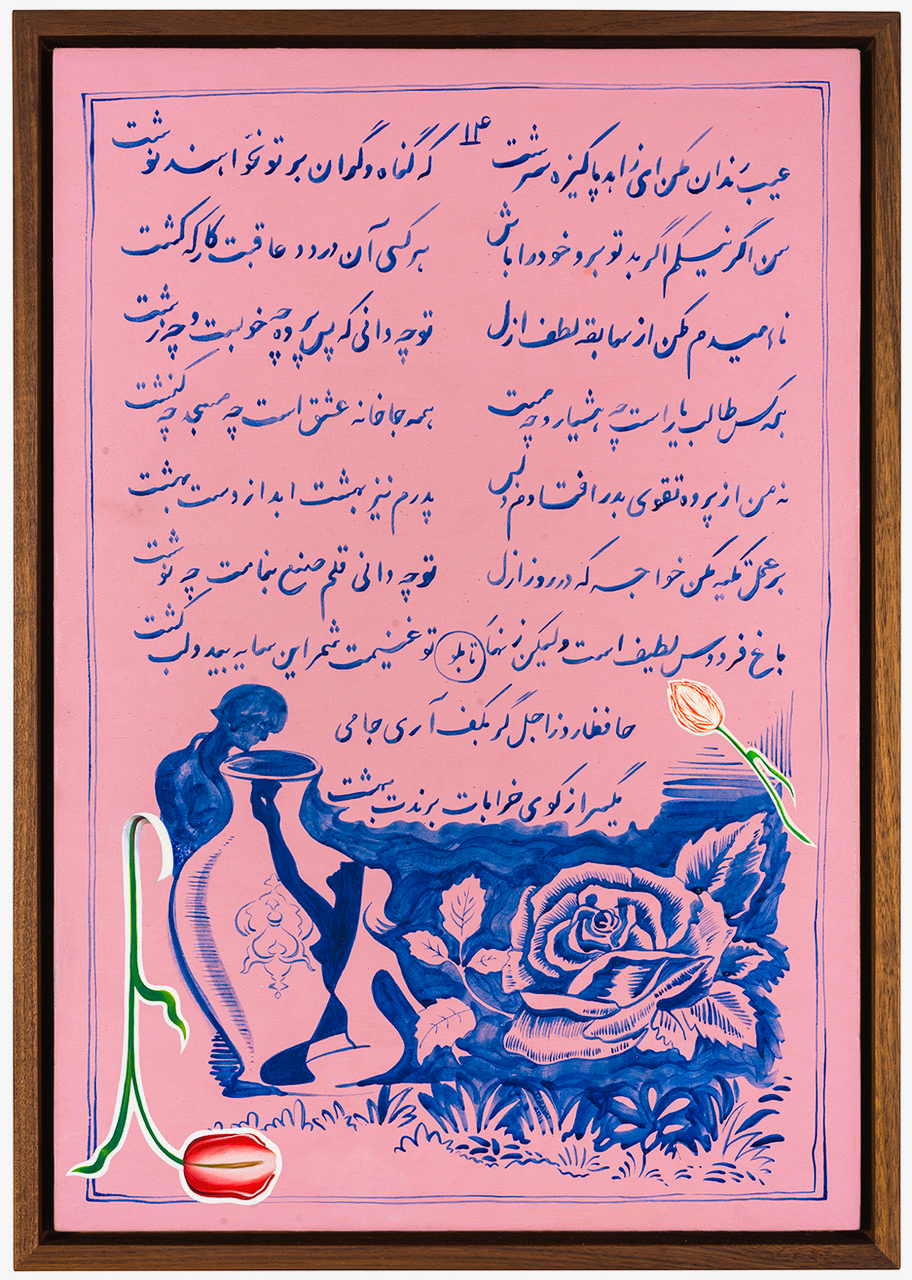 عیب رندان مکن ای زاهد پاکیزه سرشت که گناه دگران بر تو نخواهند نوشت
من اگر نیکم اگر بد تو برو خود را باش هر کسی آن درود عاقبت کار که کشت
ناامیدم مکن از سابقه لطف ازل تو چه دانی که پس پرده چه خوبست و چه زشت
همه کس طالب یار است چه هشیار و چه مست همه جا خانه عشق است چه مسجد چه کنشت
نه من از پرده تقوی بدر افتادم و بس پدرم نیز بهشت ابد از دست بهشت
بر عمل تکیه مکن خواجه که در روز ازل تو چه دانی قلم صنع بنامت چه نوشت
باغ فردوس لطیف است ولیکن زنهار تابلو تو غنیمت شمر این سایه بید و لب کشت
حافظا روز اجل گر بکف آری جامی
یکسر از کوی خرابات برندت بهشت